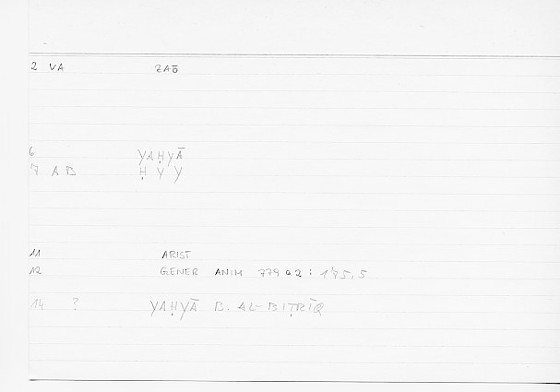 2 VA ζάω
6 YAḤYĀ
7 AB ḤYY
11 ARIST
12 GENER ANIM 779 a 2 : 175,5
14 ? YAḤYĀ B. AL-BIṬRĪQ